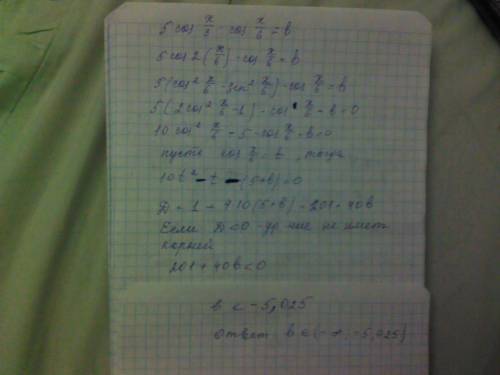 5 cos x/3 - cos x/6 = b
5 cos 2(x/6) - cos x/6 = b
5(cos² x/6 - sin² x/6) - cos x/6 = b
5(2cos² x/6 - 1) - cos x/6 - b = 0
10 cos² x/6 - 5 - cos x/6 - b = 0
пусть cos x/6 = t, тогда
10t² - t - (5+b) = 0
D = 1 + 4·10(5+b) = 201 + 40b
Если D<0 ур-ние не имет
корней
201 + 40b < 0
b < -5,025
Ответ b ∈ (-∞; -5,025)